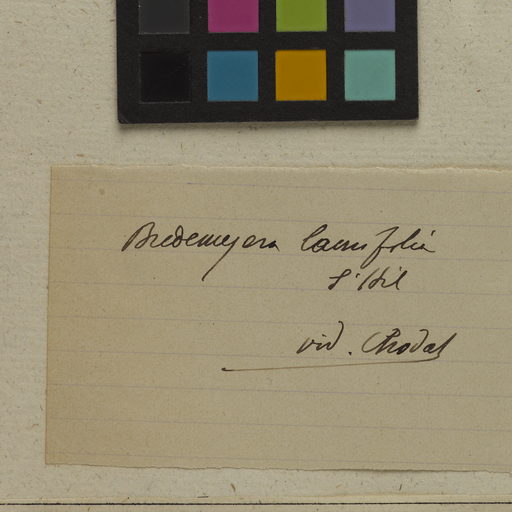 Bredemeyera laurifolia
St Hil
vid. Chodat